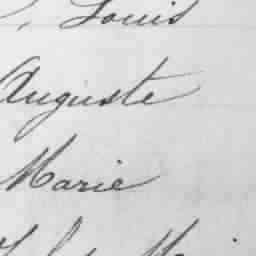 , Louis
Auguste
Marie